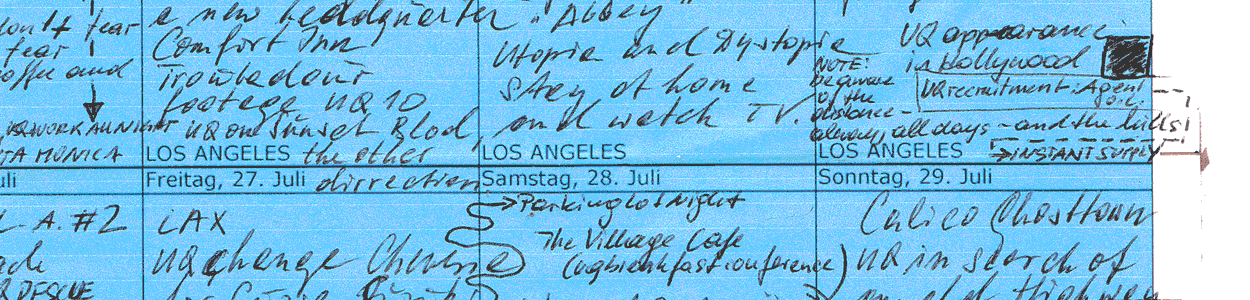 don't fear
fear
coffee and
UQ WORK ALL NIGHT
SANTA MONICA
uli
L.A. #2
a new headquarter "Abbey"
Comfort Inn
Troubadour
footage UQ 10
UQ on Sunset Blvd
LOS ANGELES the other
Freitag, 27. Juli dirrection
LAX
UQ change
Utopia and Dystopia
stay at home
and watch TV.
LOS ANGELES
Samstag, 28. Juli
→Parkinglot Night
The Village Cafe
(uqbreakfastconference)
UQ appearance
in Hollywood
UQ recruitment: Agent
NOTE:
beaware
of the
distance -
always, all days - and the hills!
LOS ANGELES →INSTANT SUPPLY
Sonntag, 29. Juli
Calico Ghosttown
UQ in search of
an old Highway